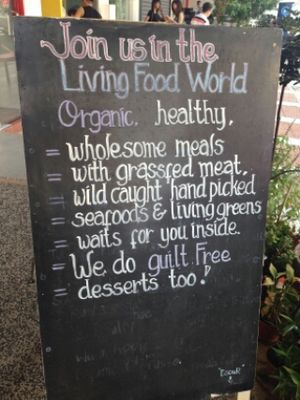 Join us in the
Living Food World
Organic. healthy,
= wholesome meals
= with grassfed meat,
= wild caught hand picked
= seafoods & living greens
= waits for you inside.
= We do guilt free
= desserts too!